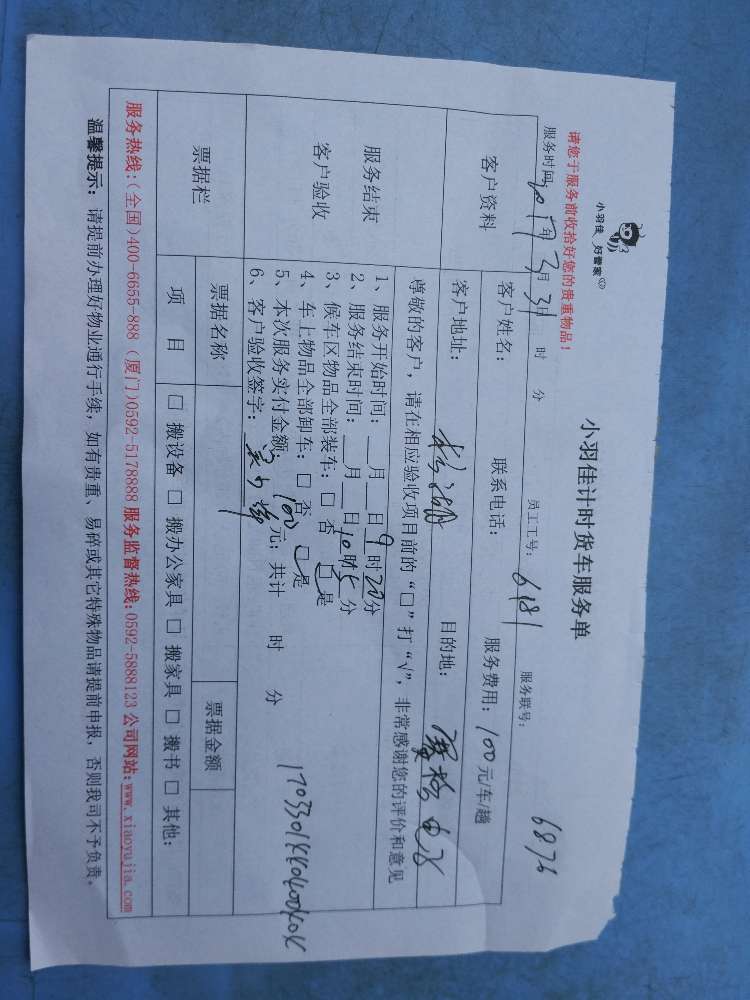 小羽佳 好管家®
小羽佳计时货车服务单
6876
请您于服务前收拾好您的贵重物品!
服务时间: 2017年3月31日 时 分 员工工号: 6181 服务联号:
客户资料 客户姓名: 联系电话: 服务费用: 100元/车/趟
客户地址: 目的地:
服务结束
客户验收
尊敬的客户,请在相应验收项目前的“□”打“√”,非常感谢您的评价和意见
1、服务开始时间:__月__日9时20分
2、服务结束时间:__月__日10时5分
3、候车区物品全部装车:□ 否 □ 是
4、车上物品全部卸车:□ 否 □ 是
5、本次服务实付金额:100元;共计 时 分
6、客户验收签字:
票据栏 票据名称 票据金额
项 目 □ 搬设备 □ 搬办公家具 □ 搬家具 □ 搬书 □ 其他:
服务热线:(全国)400-6655-888 (厦门)0592-5178888 服务监督热线:0592-5888123 公司网站:www.xiaoyujia.com
温馨提示:请提前办理好物业通行手续,如有贵重、易碎或其它特殊物品请提前申报,否则我司不予负责。